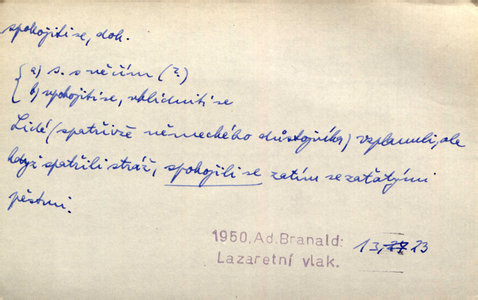 spokojiti se, dok.
a) s. s něčím (?)
b) upokojiti se, uklidniti se
Lidé (spatřivše německého důstojníka) vzplanuli, ale
když spatřili stráž, spokojili se zatím se zaťatými
pěstmi.
1950, Ad. Branald:
Lazaretní vlak.
13, 23